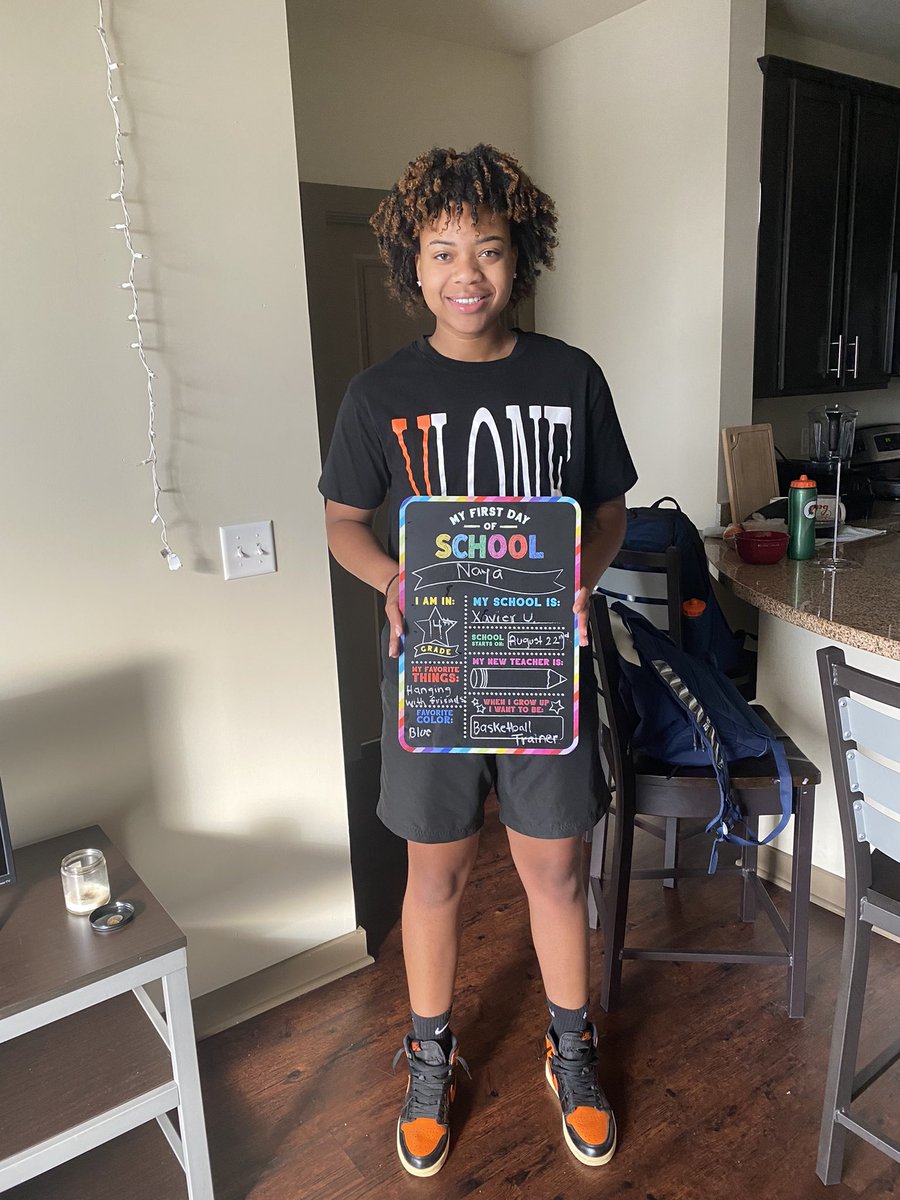 VLONE
MY FIRST DAY
OF
SCHOOL
Naya
I AM IN:
14th
GRADE
MY SCHOOL IS:
Xavier U.
SCHOOL
STARTS ON:
August 22nd
MY FAVORITE
THINGS:
Hanging
with friends
MY NEW TEACHER IS:
FAVORITE
COLOR:
Blue
WHEN I GROW UP
I WANT TO BE:
Basketball
Trainer